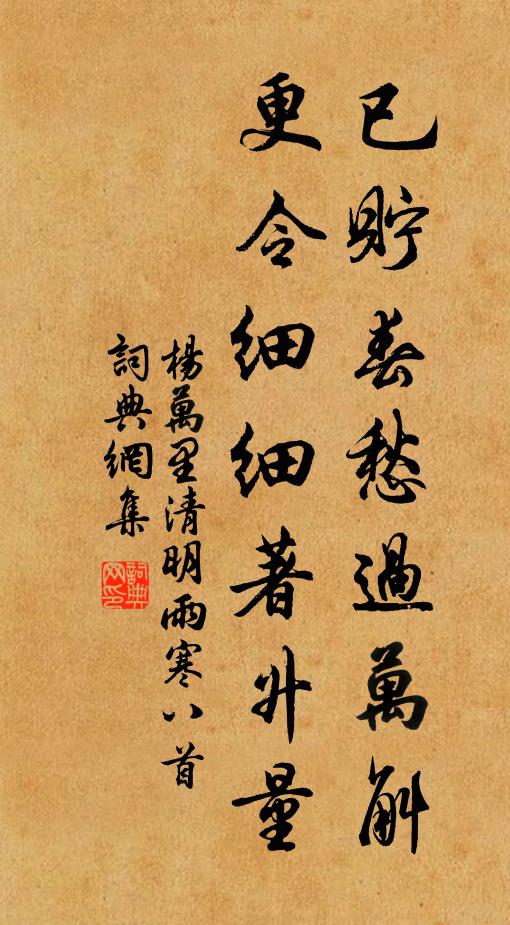 已貯春愁過萬斛
更令細細著升量
楊萬里清明雨寒八首
詞典網集
詞典網印